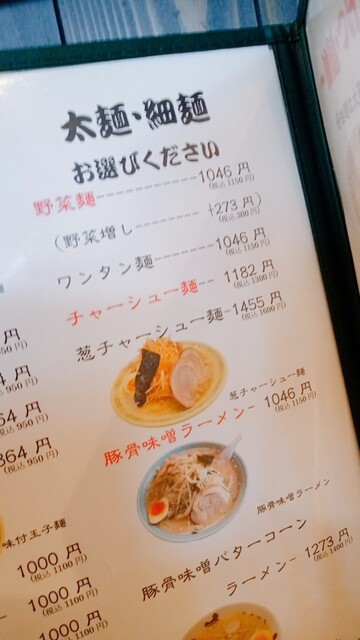 太麺・細麺
お選びください
野菜麺----------1046 円
(税込 1150 円)
(野菜増し-------- +273 円)
(税込 300 円)
ワンタン麺-------1046 円
(税込 1150 円)
チャーシュー麺-- 1182 円
(税込 1300 円)
葱チャーシュー麺-1455 円
(税込 1600 円)
葱チャーシュー麺
豚骨味噌ラーメン- 1046 円
(税込 1150 円)
豚骨味噌ラーメン
豚骨味噌バターコーン
ラーメン- 1273 円
(税込 1400 円)
円
950 円)
円
(税込 950 円)
円
(税込 950 円)
864 円
(税込 950 円)
味付玉子麺
1000 円
(税込 1100 円)
1000 円
(税込 1100 円)
1000 円